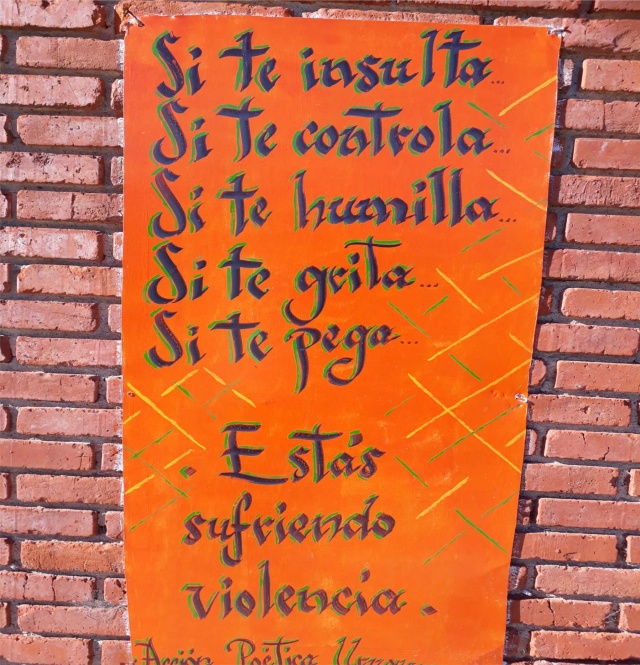 Si te insulta...
Si te controla...
Si te humilla...
Si te grita...
Si te pega...
. Estás
sufriendo
violencia.
Acción Poética